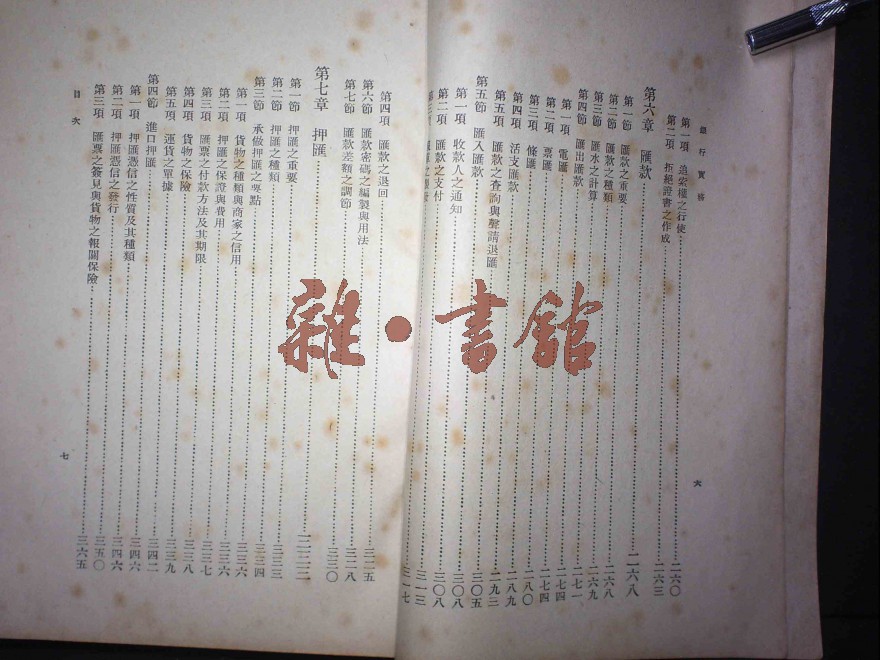 銀行實務
第一項 追索權之行使 二六〇
第二項 拒絕證書之作成 二六三
第六章 匯款 二六八
第一節 匯款之重要 二六八
第二節 匯款之種類 二六九
第三節 匯水之計算 二七一
第四節 匯出匯款 二七四
第一項 電匯 二七四
第二項 票匯 二八〇
第三項 條匯 二八九
第四項 活支匯款 二九三
第五項 匯款之查詢與聲請退匯 三〇五
第五節 匯入匯款 三〇八
第一項 收款人之通知 三〇八
第二項 匯款之支付 三一三
三一七
六
第四項 匯款之退回 三二五
第六節 匯款密碼之編製與用法 三二八
第七節 匯款差額之調節 三三〇
第七章 押匯
第一節 押匯之重要 三三三
第二節 押匯之種類 三三四
第三節 承做押匯之要點 三三六
第一項 貨物之種類與商家之信用 三三六
第二項 押匯之保證與費用 三三七
第三項 匯票之付款方法及其期限 三三八
第四項 貨物之保險 三三九
第五項 運貨之單據 三四二
第四節 進口押匯 三四六
第一項 押匯憑信之性質及其種類 三四六
第二項 押匯憑信之發行 三五〇
第三項 匯票之簽見與貨物之報關保險 三六五
目次
七
雜·書館